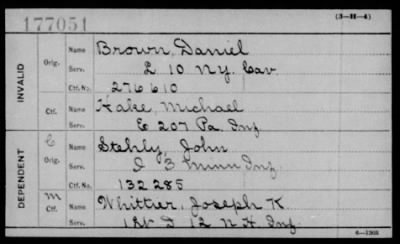 177051
(3—H—4)
INVALID
Orig.
Name Brown, Daniel
Serv. L 10 N.Y. Cav.
Ctf. No. 276610
Ctf.
Name Hake, Michael
Serv. E 207 Pa. Inf
DEPENDENT
C
Orig.
Name Stehly, John
Serv. I 3 Minn Inf.
Ctf. No. 132285
M
Ctf.
Name Whittier, Joseph K.
Serv. D 12 N.H. Inf.
6—1205